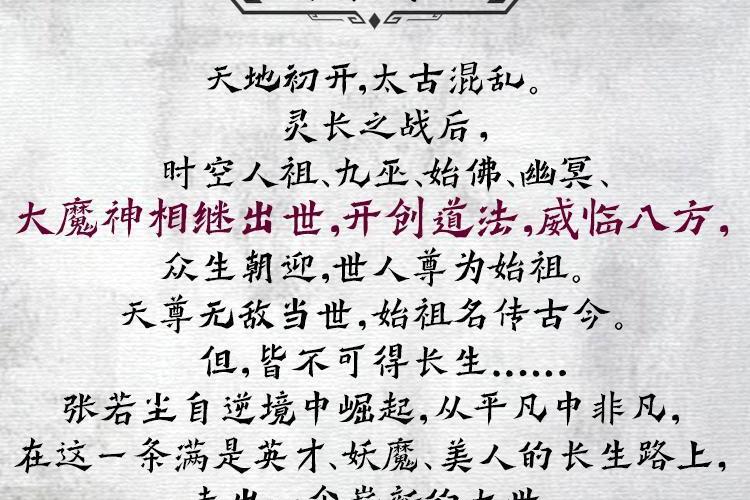 天地初开,太古混乱。
灵长之战后,
时空人祖、九巫、始佛、幽冥、
大魔神相继出世,开创道法,威临八方,
众生朝迎,世人尊为始祖。
天尊无敌当世,始祖名传古今。
但,皆不可得长生......
张若尘自逆境中崛起,从平凡中非凡,
在这一条满是英才、妖魔、美人的长生路上,